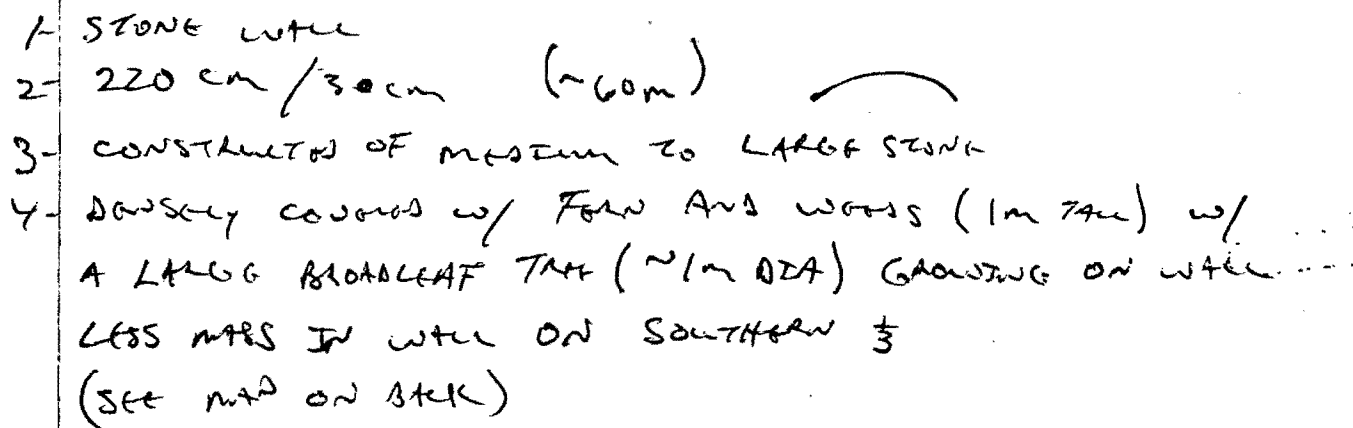 1- STONE WALL
2- 220 cm / 30cm (~60m)
3- CONSTRUCTED OF MEDIUM TO LARGE STONE
4- DENSELY COVERED w/ FERN AND WEEDS (1m TALL) w/
A LARGE BROADLEAF TREE (~1m DIA) GROWING ON WALL
LESS MASS IN WALL ON SOUTHERN ⅓
(SEE MAP ON BACK)